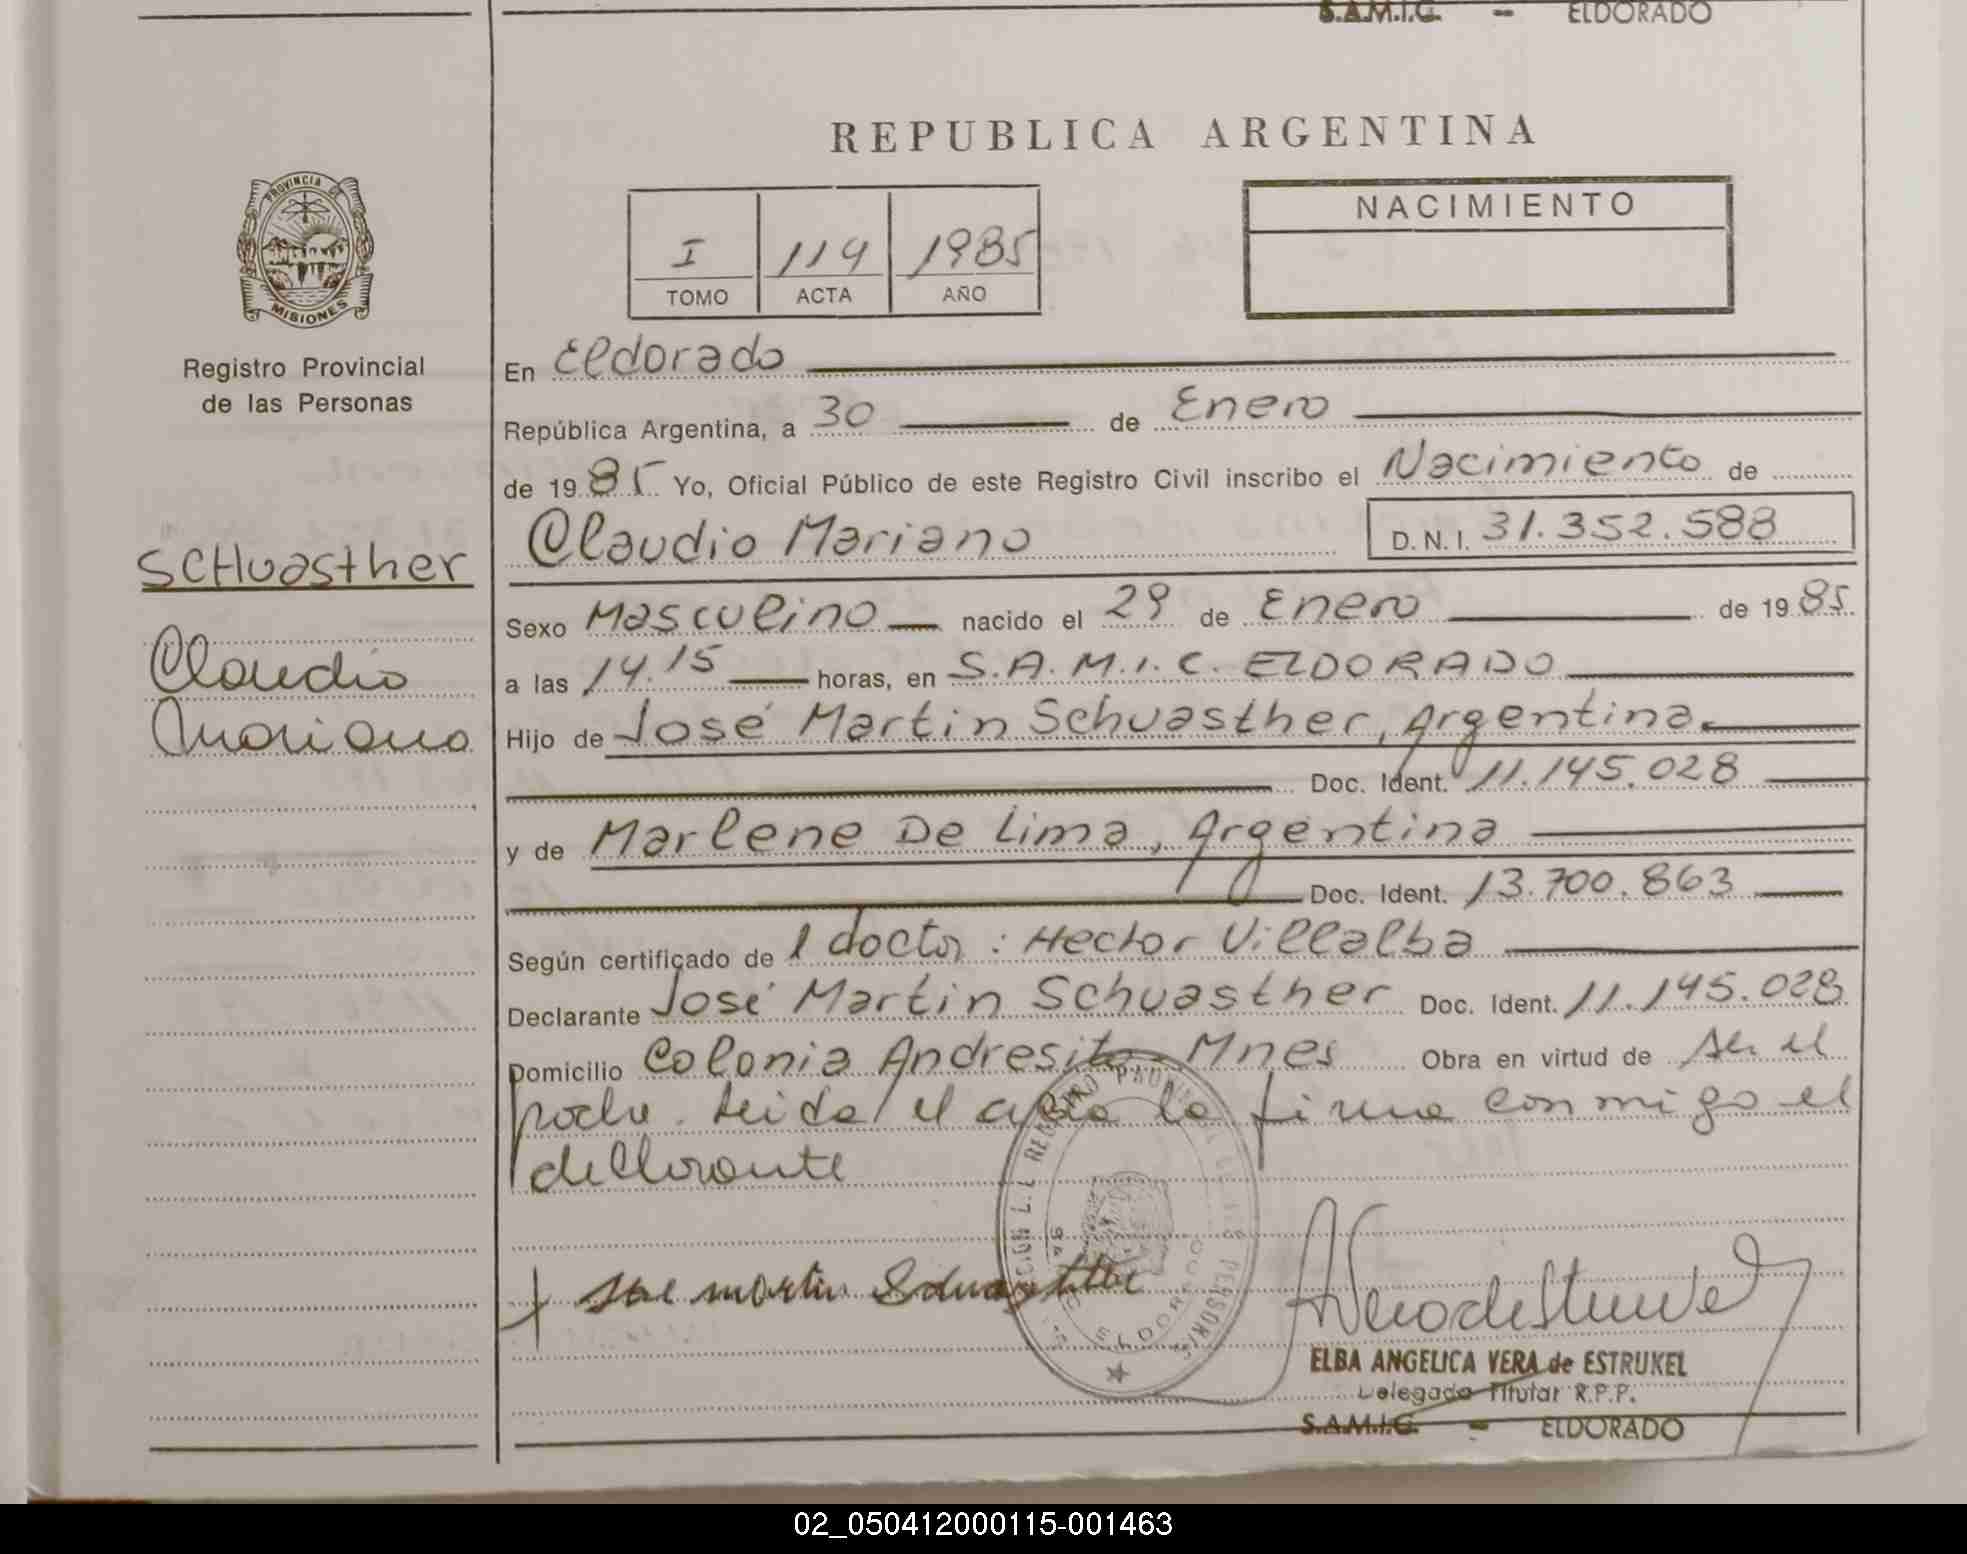 S.A.M.I.C. - ELDORADO
REPUBLICA ARGENTINA
PROVINCIA DE
MISIONES
Registro Provincial
de las Personas
I 114 1985
TOMO ACTA AÑO
NACIMIENTO
SCHuasther
Claudio
Mariano
En Eldorado
República Argentina, a 30 de Enero
de 1985 Yo, Oficial Público de este Registro Civil inscribo el Nacimiento de
Claudio Mariano D.N.I. 31.352.588
Sexo Masculino nacido el 29 de Enero de 1985
a las 14.15 horas, en S.A.M.I.C. ELDORADO
Hijo de José Martin Schuasther, Argentina.
Doc. Ident. 11.145.028
y de Marlene De Lima, Argentina
Doc. Ident. 13.700.863
Según certificado de l doctor: Hector Villalba
Declarante José Martin Schuasther Doc. Ident. 11.145.028
Domicilio Colonia Andresito - Mnes Obra en virtud de ser el
padre. Leida el acta la firma conmigo el
declarante
José martin Schuasther
REGISTRO PROVINCIAL DE LAS PERSONAS
ELDORADO
ELBA ANGELICA VERA de ESTRUKEL
Delegada Titular R.P.P.
S.A.M.I.C. - ELDORADO
02_050412000115-001463